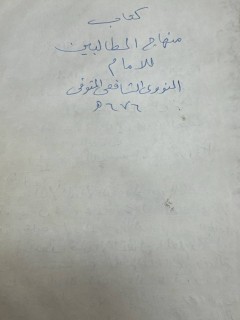 كتاب
منهاج الطالبين
للامام
النووى الشافعى المتوفى
٦٧٦ ه